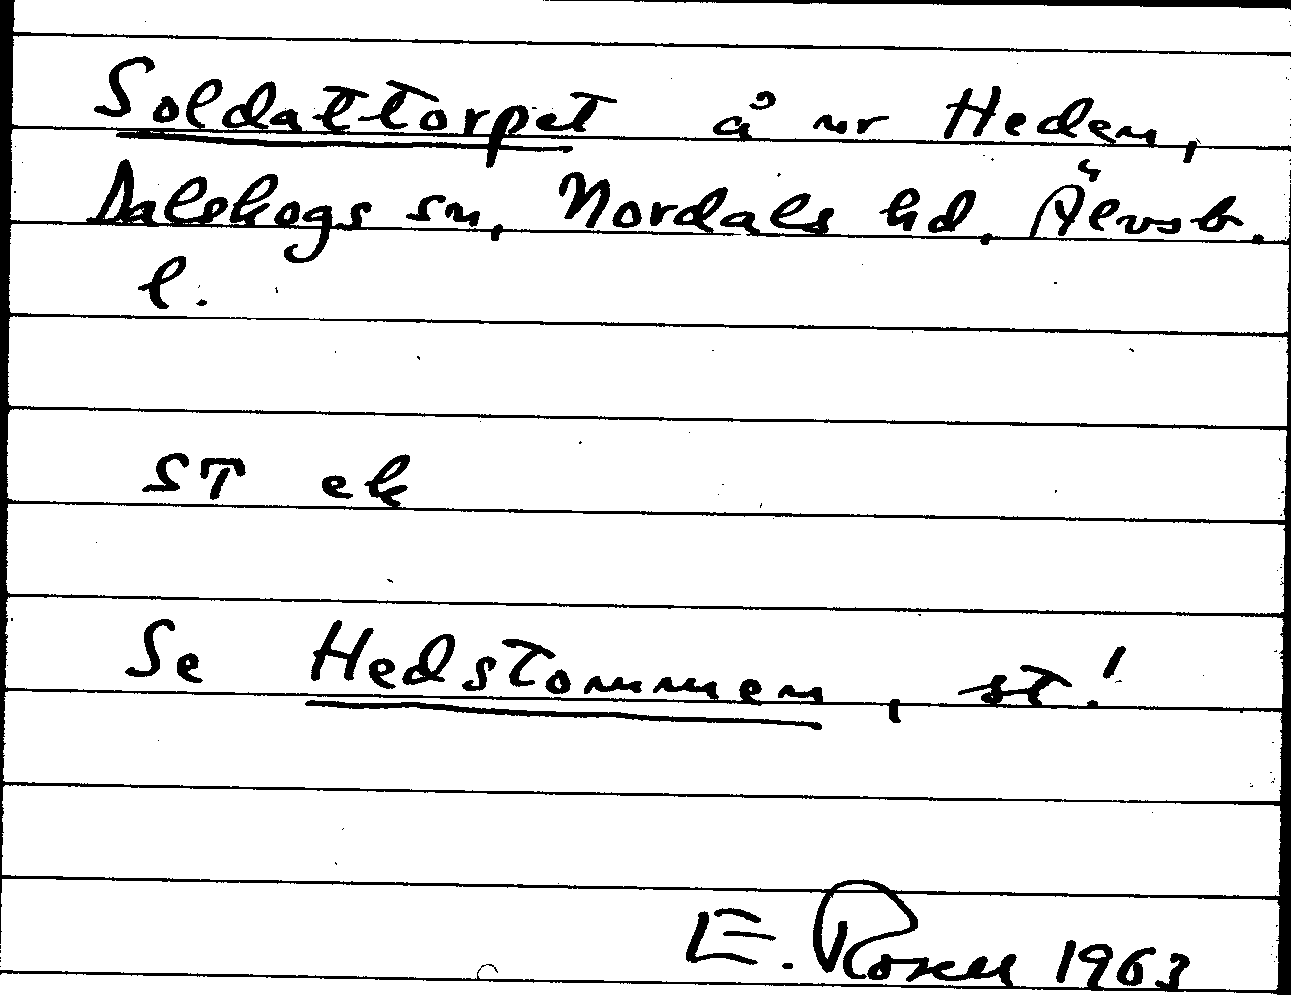 Soldattorpet å nr Heden,
Dalskogs sn, Nordals hd. Älvsb.
l.
ST ek
Se Hedstommen, st!
E. Rosell 1963